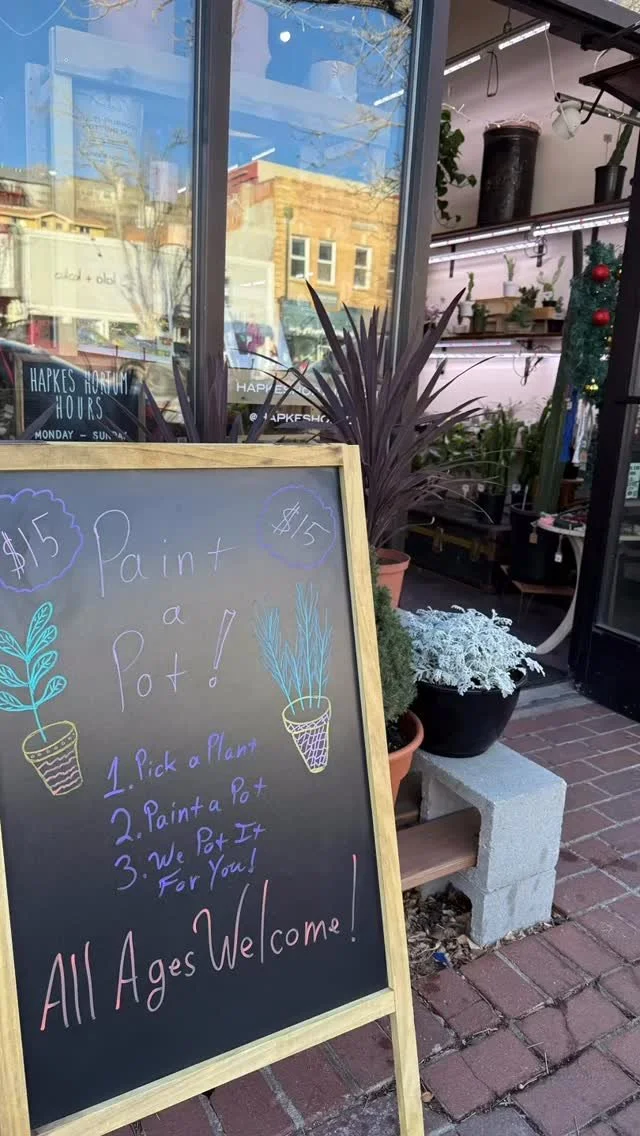 HAPKES HORTUM
HOURS
MONDAY - SUNDAY
HAPKESHO
@HAPKESHO
lala + koko
$15
$15
Paint
a
Pot!
1. Pick a Plant
2. Paint a Pot
3. We Pot It
For You!
All Ages Welcome!